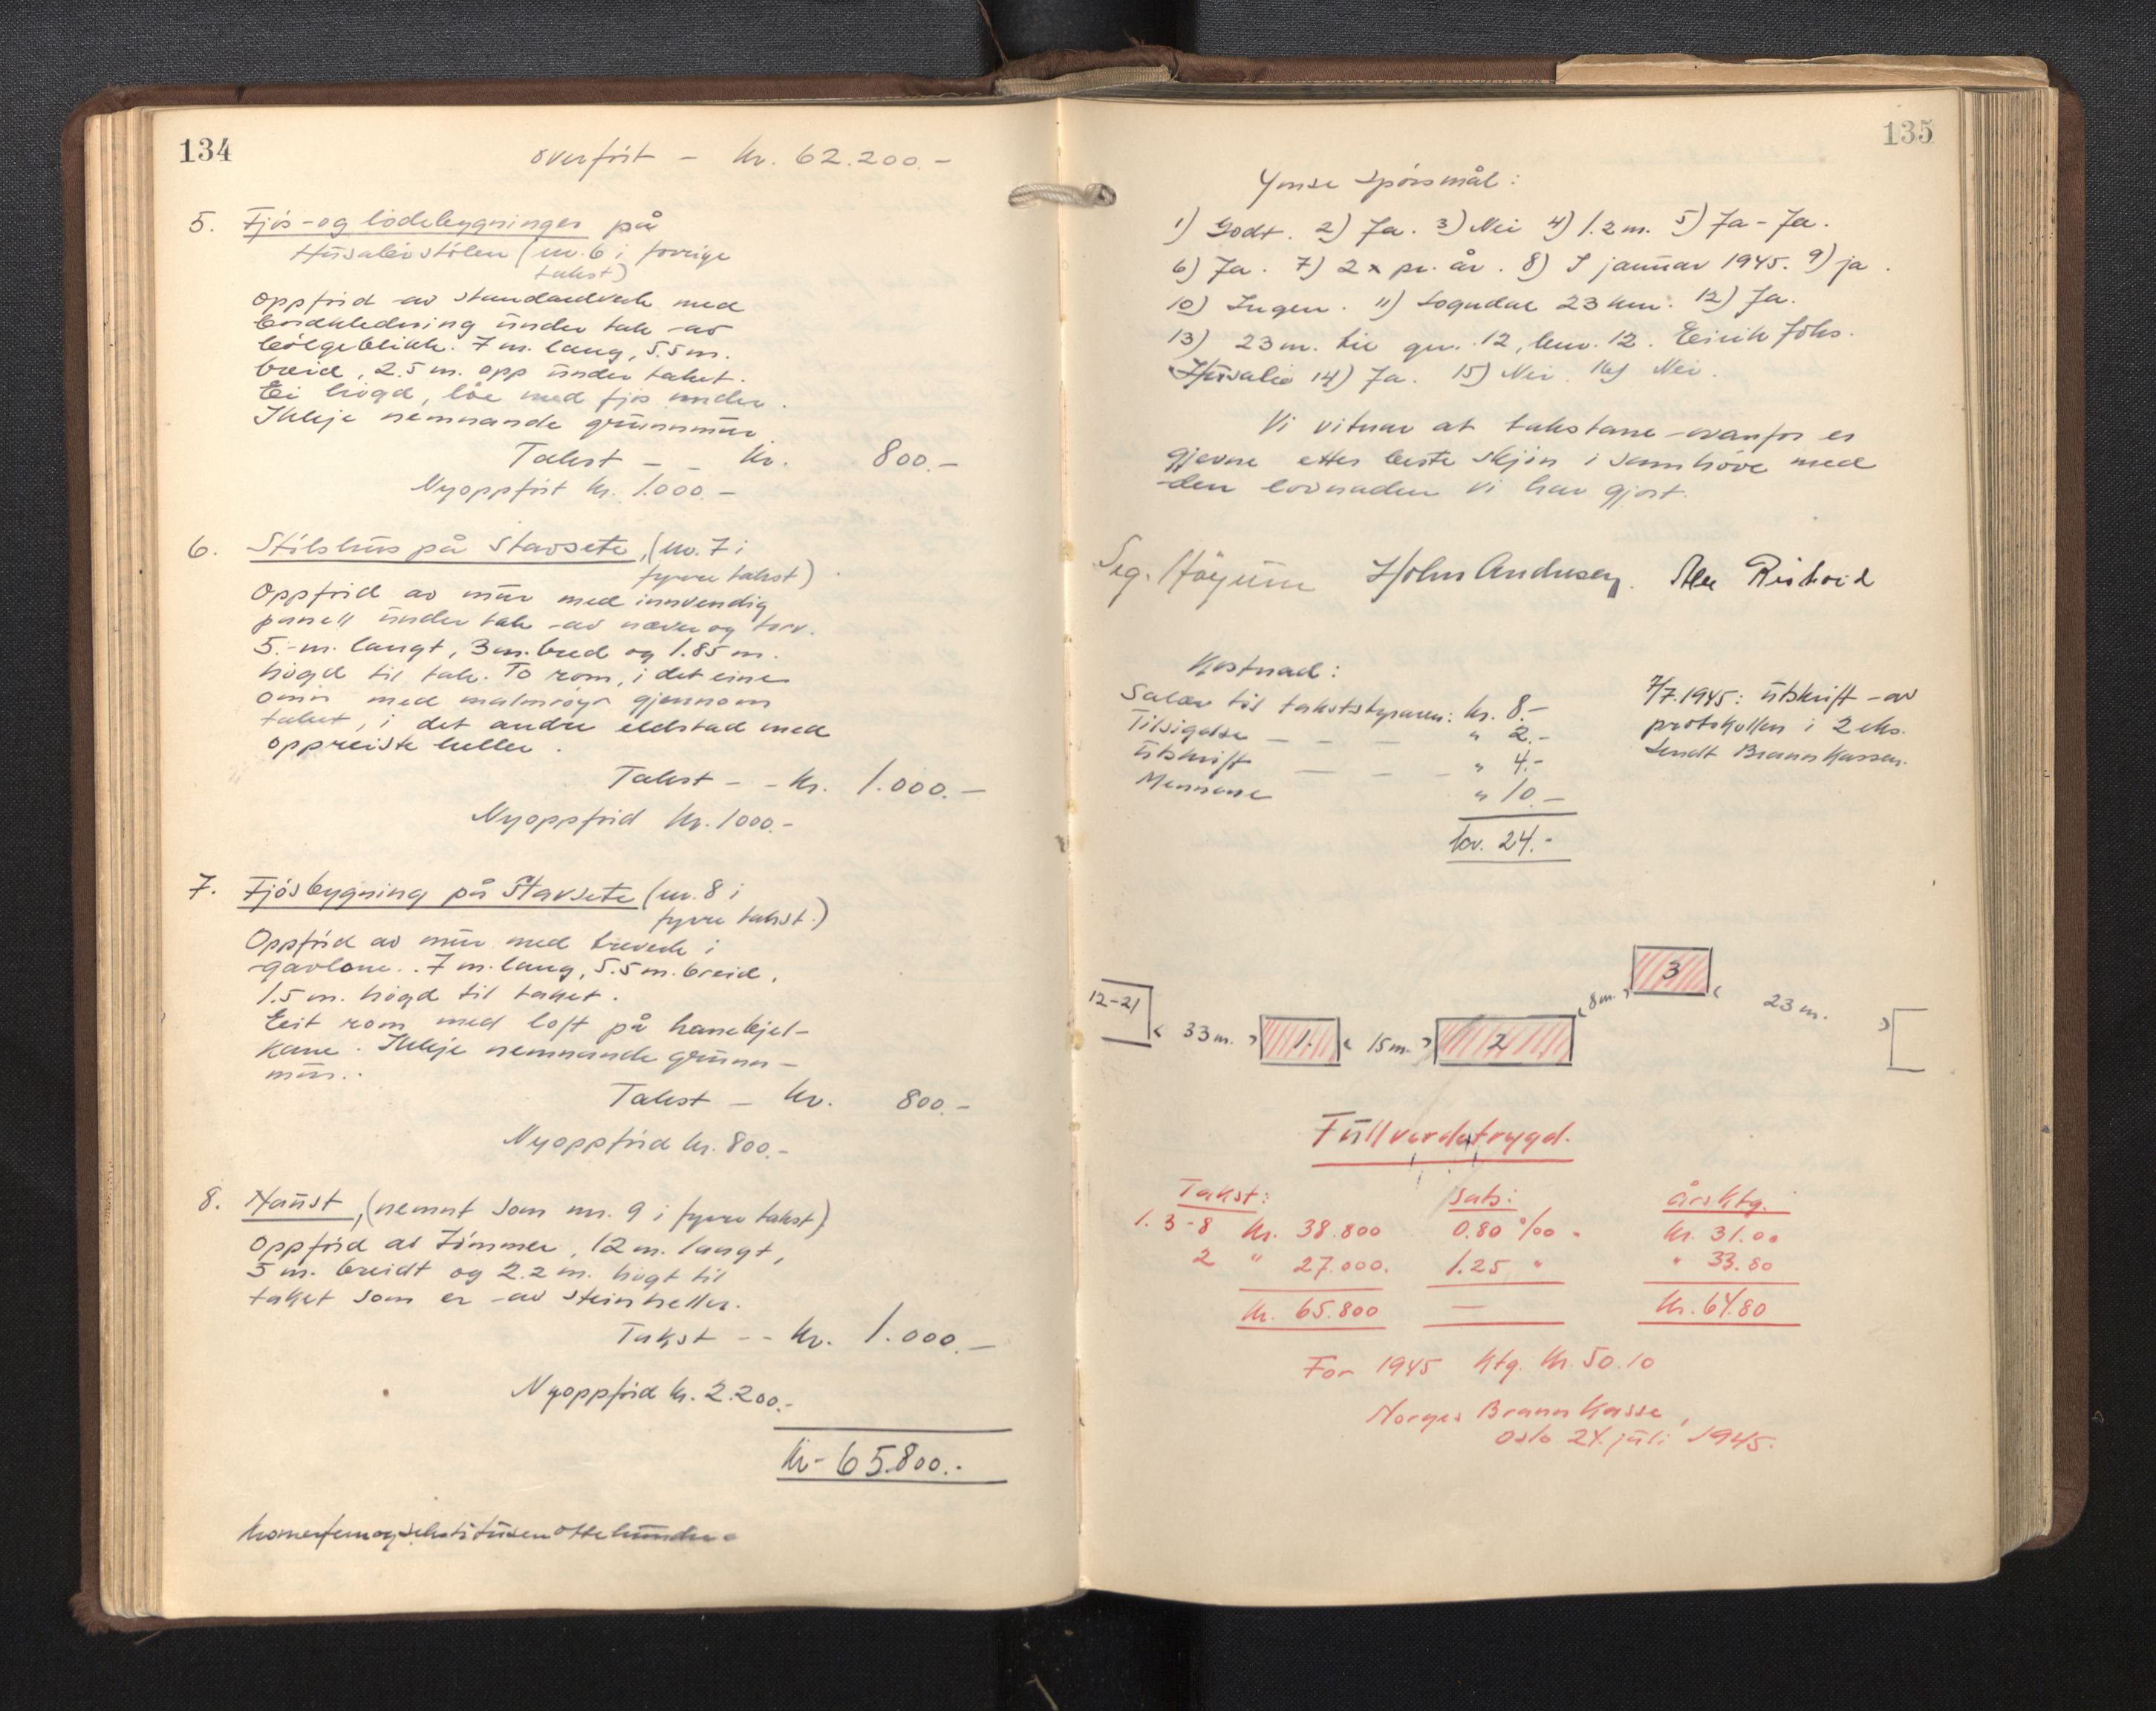 134
overført - kr. 62.200.-
5. Fjøs- og lødebygningen på
Husaliastølen (nr. 6 i forrige
takst)
Oppförd av standardverk med
bordkledning under tak av
bölgeblikk. 7 m. lang, 5.5 m.
breid, 2.5 m. opp under taket.
Ei högd, löe med fjös under.
Ikkje nemnande grunnmur.
Takst - - kr. 800.-
Nyoppfört kr. 1.000.-
6. Stölshus på Stavsete, (nr. 7 i
fyrre takst)
Oppförd av mur med innvendig
panell under tak av never og torv.
5.- m. langt, 3 m. bred og 1.85 m.
högd til tak. To rom, i det eine
omn med malmröyr gjennom
taket, i det andre eldstad med
oppreiste heller.
Takst - - kr. 1.000.-
Nyoppförd kr. 1000.-
7. Fjösbygning på Stavsete (nr. 8 i
fyrre takst.)
Oppförd av mur med treverk i
gavlane. 7 m. lang, 5.5 m. breid,
1.5 m. högd til taket.
Eit rom med loft på hanebjel-
kane. Ikkje nemnande grunn-
mur.
Takst - kr. 800.-
Nyoppförd kr. 800.-
8. Naust, (nemnt som nr. 9 i fyrre takst)
Oppförd at tömmer, 12 m. langt,
5 m. breidt og 2.2 m. högt til
taket som er av steinheller.
Takst - - kr. 1.000.-
Nyoppförd kr. 2.200.-
kr. 65.800.-
135
Ymse spörsmål:
1) Godt. 2) Ja. 3) Nei 4) 1.2 m. 5) Ja - Ja.
6) Ja. 7) 2 x pr. år. 8) I januar 1945. 9) ja.
10) Ingen. 11) Sogndal 23 km. 12) Ja.
13) 23 m. til gnr. 12, bnr. 12. Eirik Johs.
Husalid 14) Ja. 15) Nei. 16) Nei.
Vi vitnar at takstane ovanfor er
gjevne etter beste skjön i samhöve med
den lovnaden vi har gjort.
Sig. Höyum John Andersen.
Kostnad:
Salær til takststyraren: kr. 8.-
Tilsigelse - - - " 2.-
Utskrift - - - " 4.-
Mennene " 10.-
kr. 24.-
7/7.1945: Utskrift av
protokollen i 2 eks.
sendt Brannkassen.
3
8 m.
23 m.
12-21
33 m.
1.
15 m.
2
Fullverdetrygd.
Takst: Sats: årsktg.
1. 3-8 kr. 38.800 0.80 ‰. kr. 31.00
2 " 27.000. 1.25 " " 33.80
kr. 65.800 — kr. 64.80
For 1945 ktg. kr. 50.10
Norges Brannkasse,
Oslo 24. juli 1945.